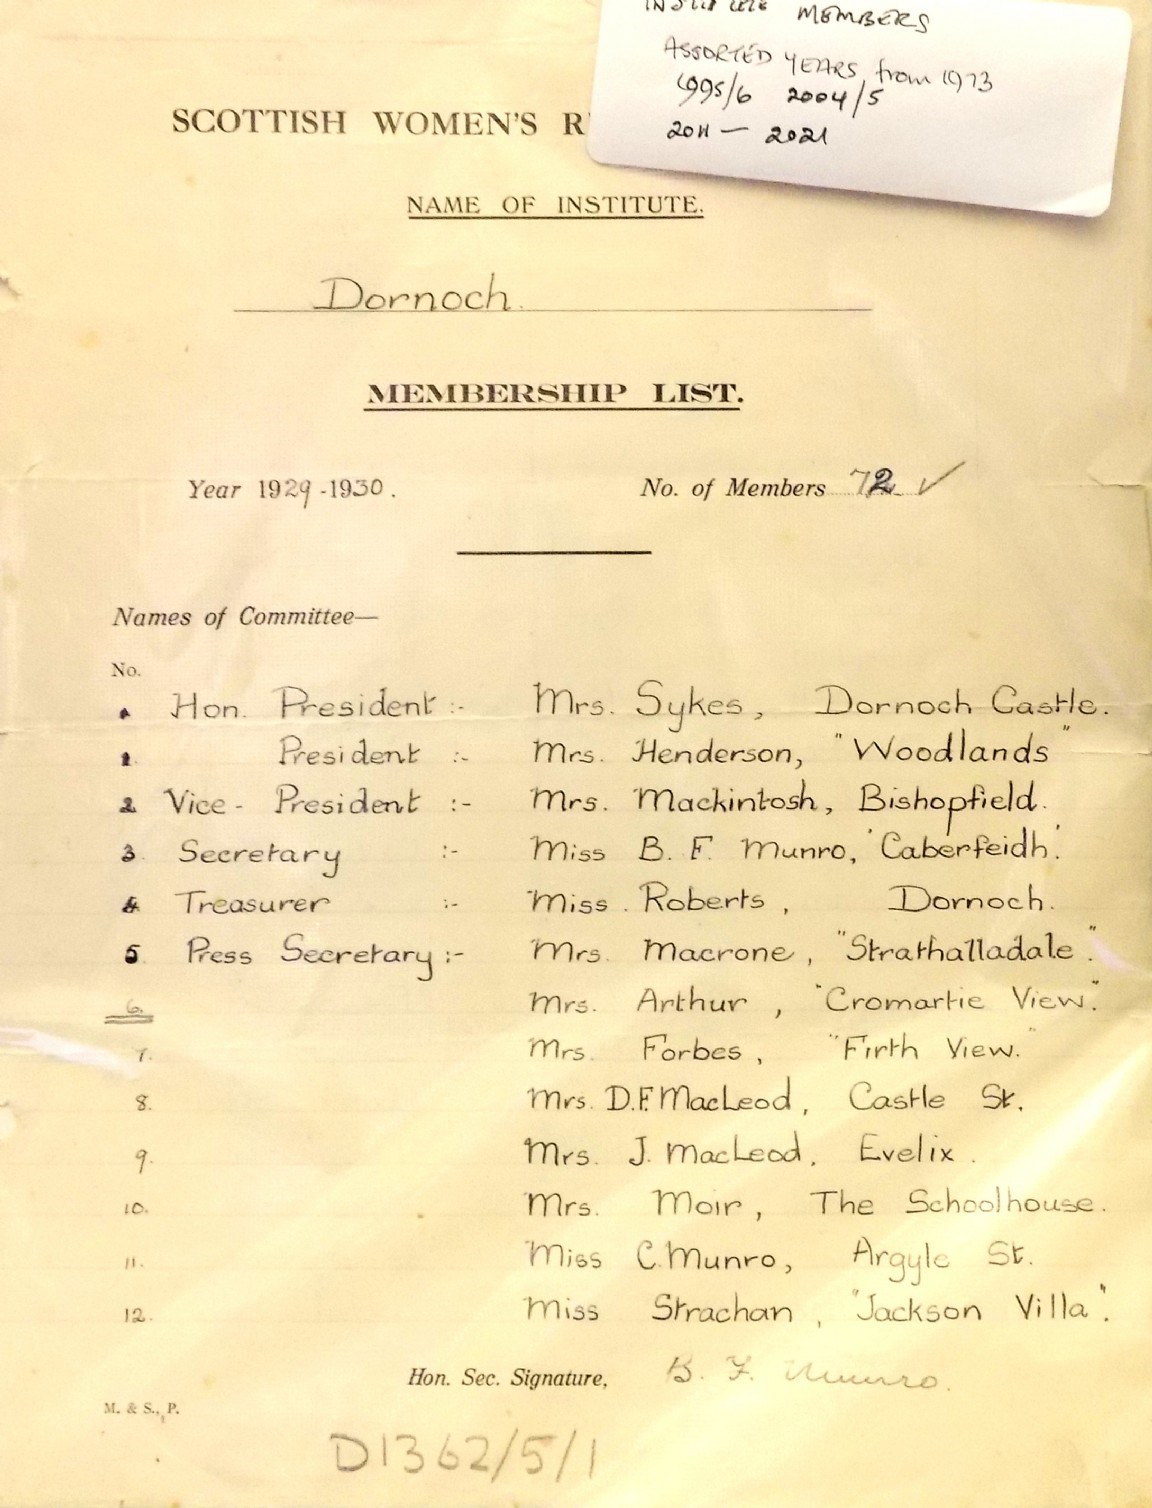 INSTITUTE MEMBERS
ASSORTED YEARS from 1973
1995/6 2004/5
2011 — 2021
SCOTTISH WOMEN'S R
NAME OF INSTITUTE.
Dornoch.
MEMBERSHIP LIST.
Year 1929-1930. No. of Members 72 ✓
Names of Committee—
No.
Hon. President :- Mrs. Sykes, Dornoch Castle.
1. President :- Mrs. Henderson, "Woodlands"
2 Vice-President :- Mrs. Mackintosh, Bishopfield.
3. Secretary :- Miss B. F. Munro, 'Caberfeidh'.
4 Treasurer :- Miss. Roberts, Dornoch.
5. Press Secretary :- Mrs. Macrone, "Strathalladale".
6. Mrs. Arthur, "Cromartie View."
7. Mrs. Forbes, "Firth View."
8. Mrs. D.F. MacLeod, Castle St.
9. Mrs. J. MacLeod, Evelix.
10. Mrs. Moir, The Schoolhouse.
11. Miss C. Munro, Argyle St.
12. Miss Strachan, "Jackson Villa".
Hon. Sec. Signature, B. F. Munro.
M. & S., P.
D1362/5/1